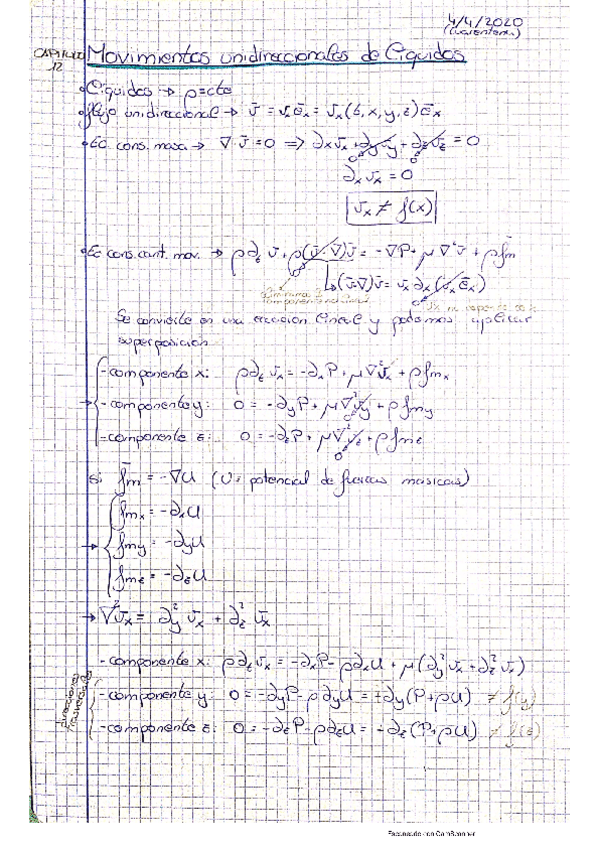 4/4/2020
(cuarentena)
CAPITULO 12
Movimientos unidireccionales de líquidos
• Líquidos → ρ=cte
• flujo unidireccional → v̄ = vₓēₓ = vₓ(t,x,y,z)ēₓ
• Ec cons. masa → ∇·v̄ = 0 => ∂ₓvₓ + ∂yvy + ∂zvz = 0
0 0
∂ₓvₓ = 0
vₓ ≠ f(x)
• Ec cons. cant. mov. → ρ∂ₜv̄ + ρ(v̄·∇)v̄ = -∇P + μ∇²v̄ + ρf̄m
↳ (v̄·∇)v̄ = vₓ∂ₓ(vₓēₓ)
0
Se convierte en una ecuacion lineal y podemos aplicar
superposicion
- componente x: ρ∂ₜvₓ = -∂ₓP + μ∇²vₓ + ρfmₓ
→ - componente y: 0 = -∂yP + μ∇²vy + ρfmy
- componente z: 0 = -∂zP + μ∇²vz + ρfmz
0
Si f̄m = -∇U (U= potencial de fuerzas masicas)
fmₓ = -∂ₓU
→ fmy = -∂yU
fmz = -∂zU
→ ∇²vₓ = ∂y²vₓ + ∂z²vₓ
- componente x: ρ∂ₜvₓ = -∂ₓP - ρ∂ₓU + μ(∂y²vₓ + ∂z²vₓ)
direcciones transversales
- componente y: 0 = -∂yP - ρ∂yU = -∂y(P+ρU) ≠ f(y)
- componente z: 0 = -∂zP - ρ∂zU = -∂z(P+ρU) ≠ f(z)
Escaneado con CamScanner